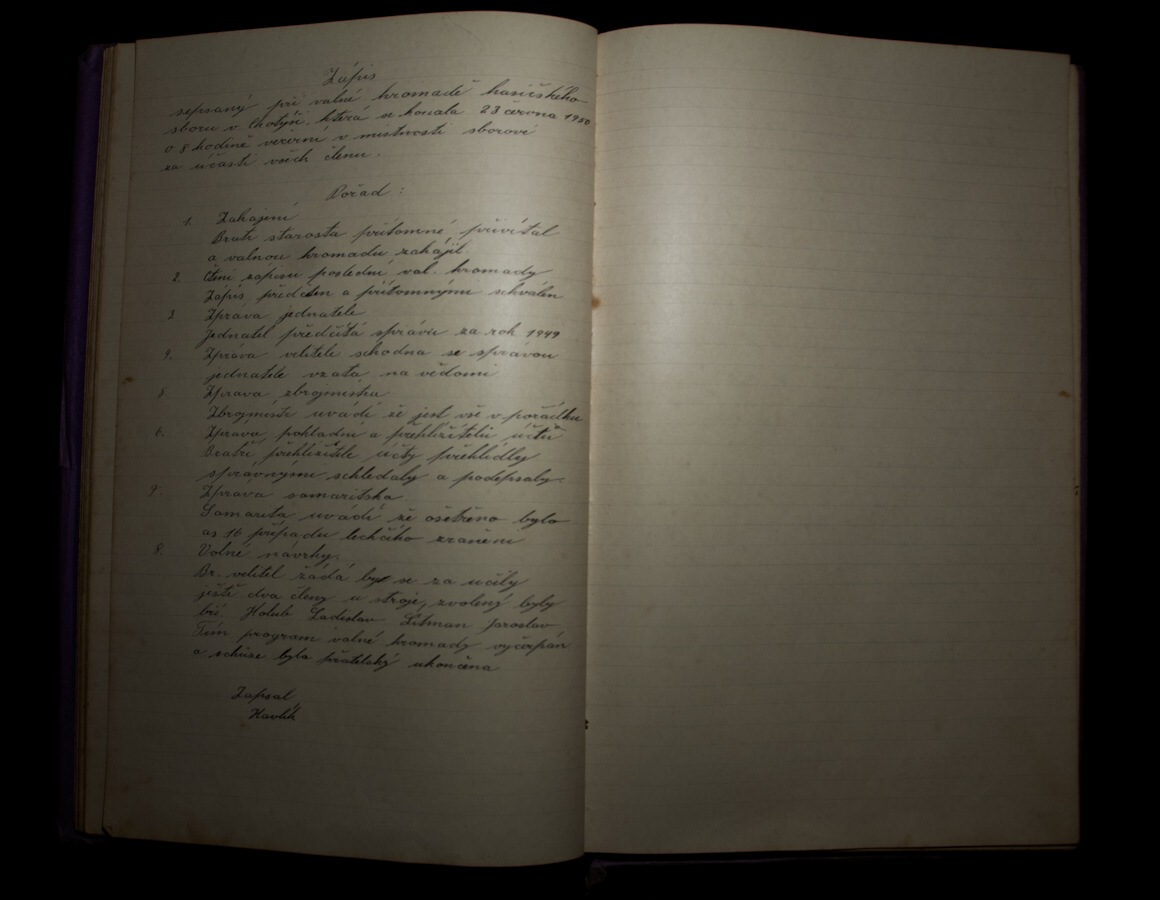 Zápis
sepsaný při valné hromadě hasičského
sboru v Chotýši, která se konala 23 června 1950
o 8 hodině večerní v místnosti sborové
za účasti všech členu.
Pořad :
1. Zahájení
Bratr starosta přítomné přivítal
a valnou hromadu zahájil.
2. Čtení zápisu poslední val. hromady
Zápis předčten a přítomnými schválen
3 Zpráva jednatele
Jednatel předčítá zprávu za rok 1949
4. Zpráva velitele schodna se zprávou
jednatele vzata na vědomí
5. Zpráva zbrojmistra
Zbrojmistr uvádí že jest vše v pořádku
6. Zpráva pokladní a přehlížitelů účtů
Bratří přehlížitelé účty přehlédly
správnými schledaly a podepsaly.
7. Zpráva samaritska
Samarita uvádí že ošetřeno bylo
as 16 případu lehčího zranění
8. Volné návrhy.
Br. velitel žádá by se za učily
ještě dva členy u stroje, zvolený byly
bří. Holub Ladislav Litman Jaroslav
Tím program valné hromady vyčerpán
a schůze byla přátelský ukončena
Zapsal
Havlík